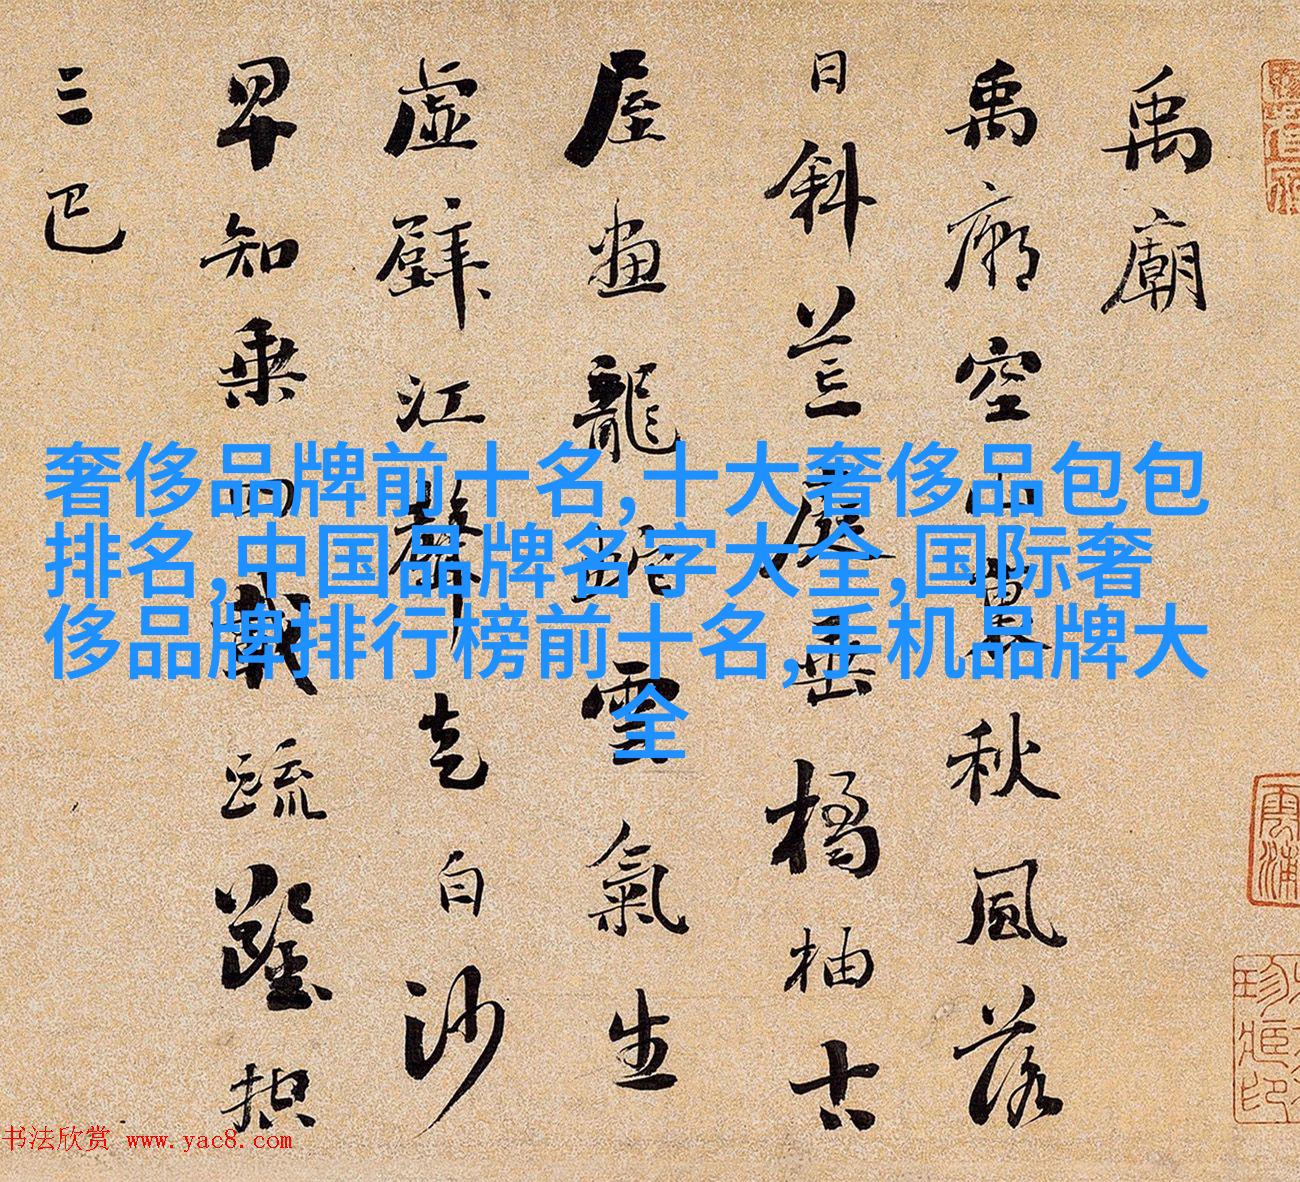 禹廟
禹廟空山裏秋風落
日斜荒庭垂橘柚古
屋畫龍蛇雲氣生
虛壁江聲走白沙
早知乘四載疏鑿控
三巴
奢侈品牌前十名,十大奢侈品包包
排名,中国品牌名字大全,国际奢
侈品牌排行榜前十名,手机品牌大
全
书法欣赏 www.yac8.com